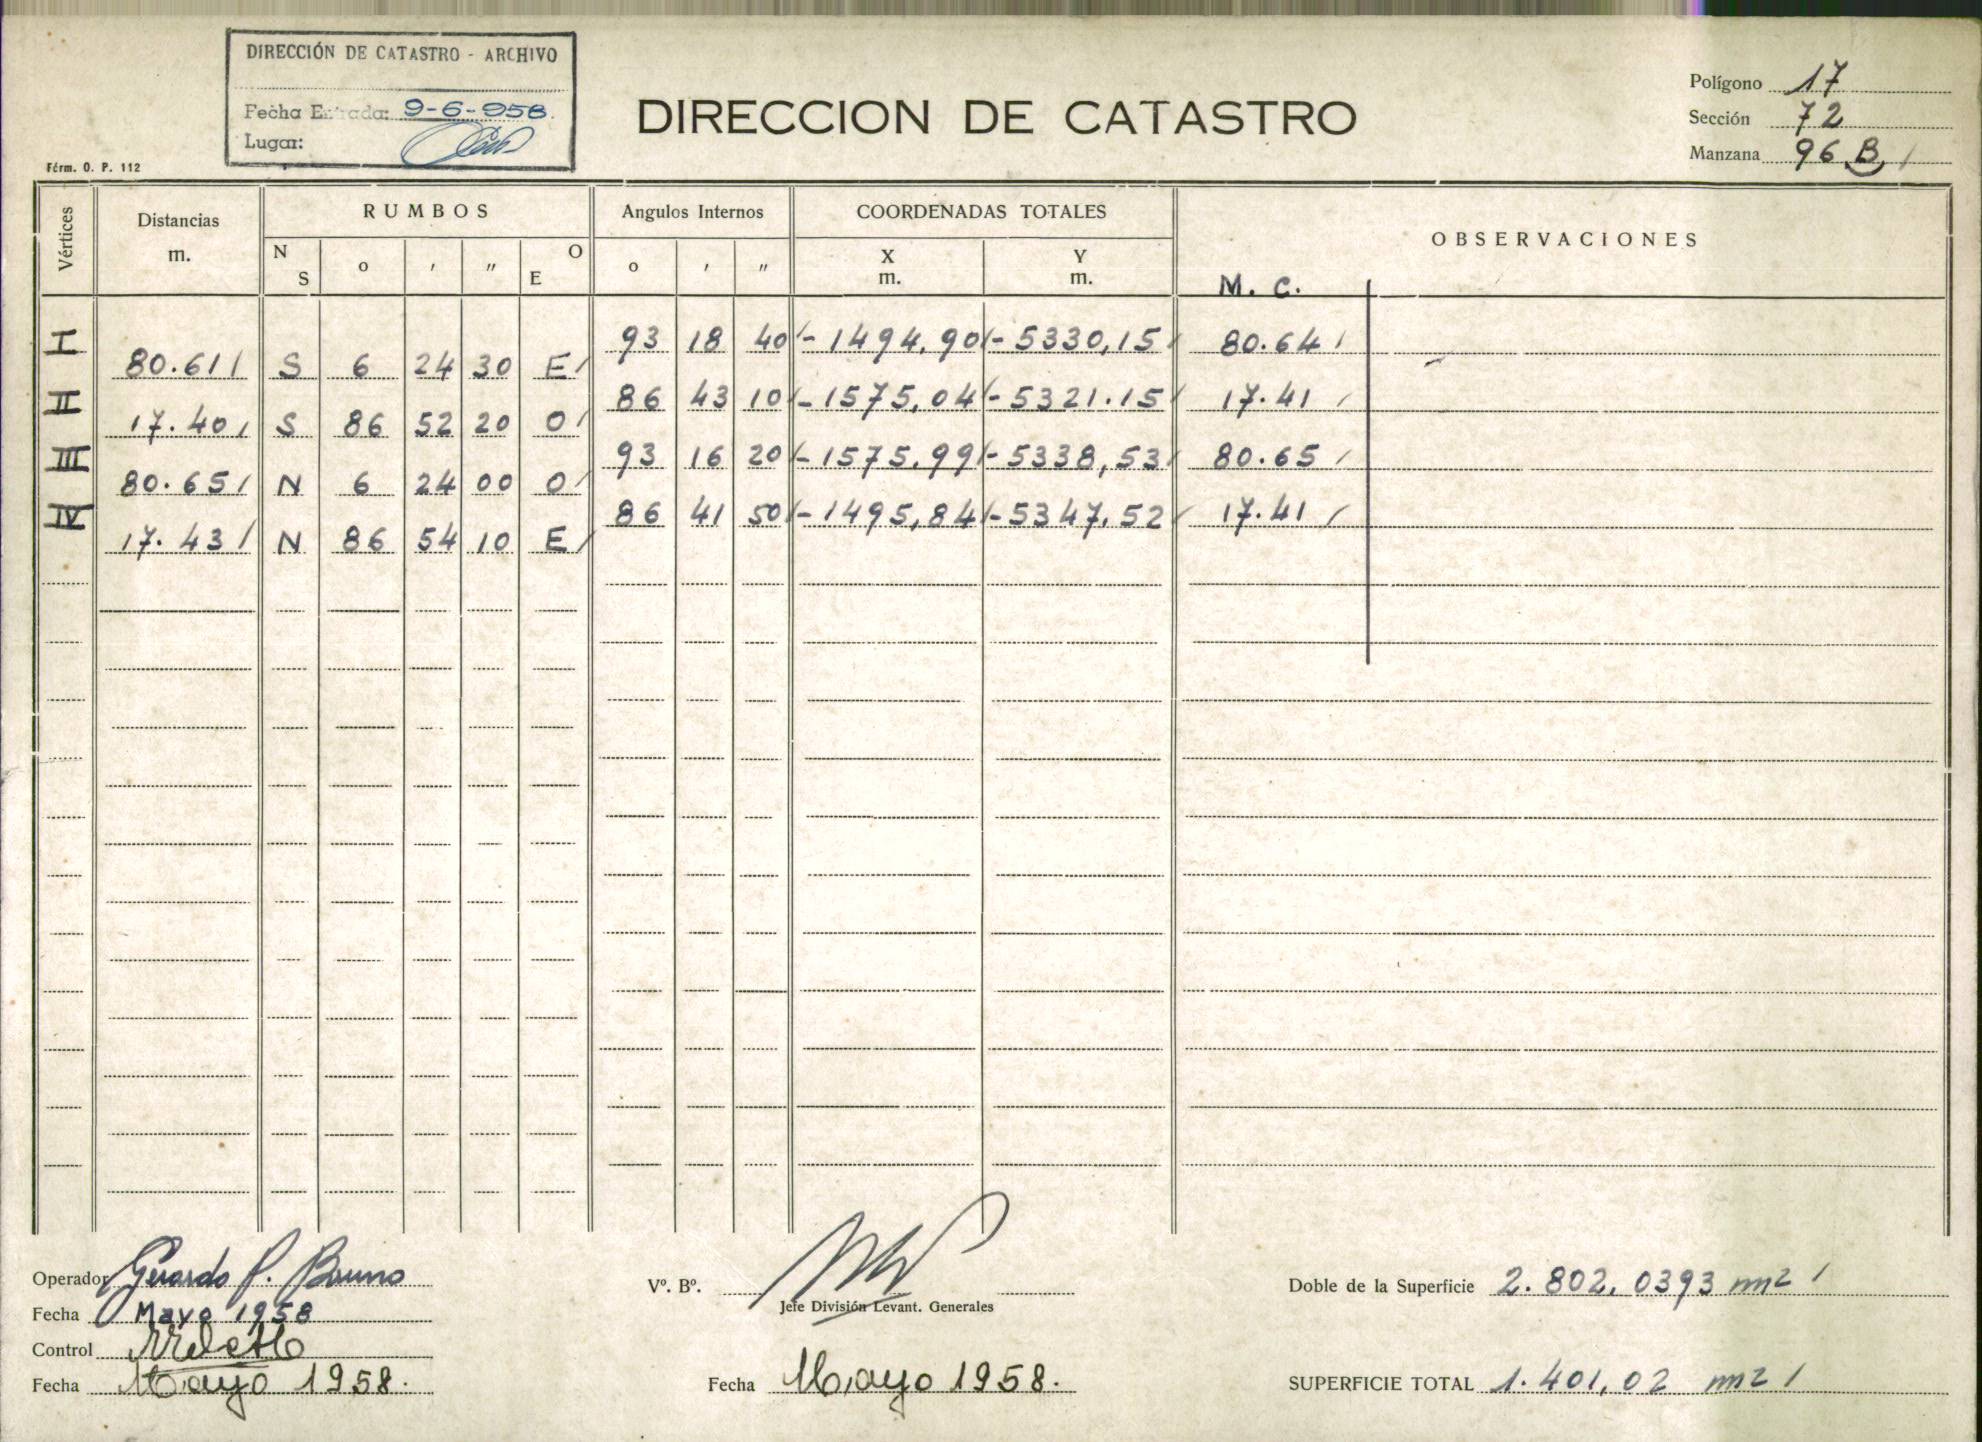 DIRECCIÓN DE CATASTRO - ARCHIVO
Fecha Entrada: 9-6-958.
Lugar:
Fórm. O. P. 112
DIRECCION DE CATASTRO
Polígono 17
Sección 72
Manzana 96 B /
Vértices Distancias m. RUMBOS Angulos Internos COORDENADAS TOTALES OBSERVACIONES
N S o ′ ″ O E o ′ ″ X m. Y m. M. C.
I 93 18 40 /- 1494,90 /- 5330,15 / 80.64 /
80.61 / S 6 24 30 E /
II 86 43 10 /- 1575,04 /- 5321.15 / 17.41 /
17.40 / S 86 52 20 O /
III 93 16 20 /- 1575,99 /- 5338,53 / 80.65 /
80.65 / N 6 24 00 O /
IV 86 41 50 /- 1495,84 /- 5347,52 / 17.41 /
17.43 / N 86 54 10 E /
Operador Gerardo P. Bruno
Fecha Mayo 1958
Control
Fecha Mayo 1958.
Vº. Bº.
Jefe División Levant. Generales
Fecha Mayo 1958.
Doble de la Superficie 2.802,0393 m2 /
SUPERFICIE TOTAL 1.401,02 m2 /